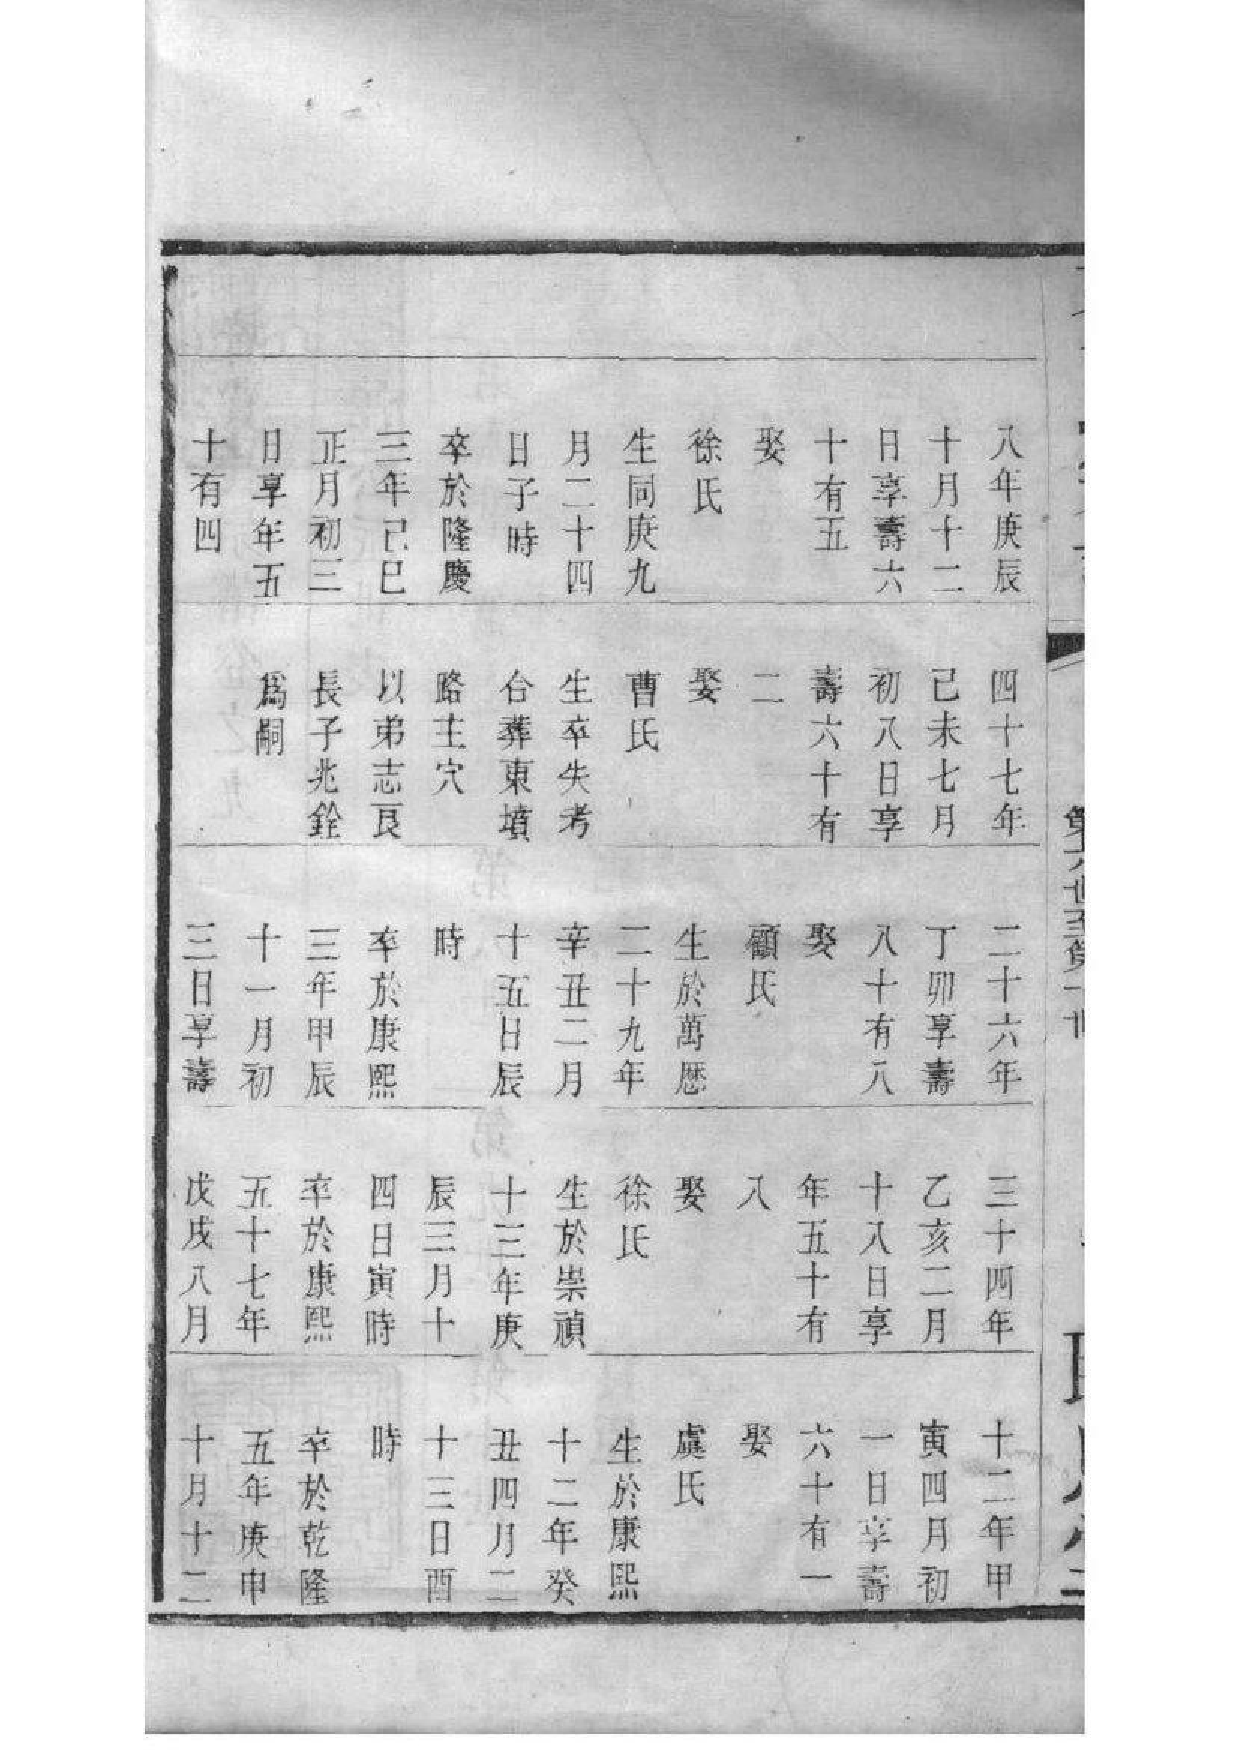 八年庚辰
十月十二
日享壽六
十有五
娶
徐氏
生同庚九
月二十四
日子時
卒於隆慶
三年己巳
正月初三
日享年五
十有四
四十七年
己未七月
初八日享
壽六十有
二
娶
曹氏
生卒失考
合葬東墳
昭主穴
以弟志良
長子兆銓
爲嗣
二十六年
丁卯享壽
八十有八
娶
顧氏
生於萬歷
二十九年
辛丑二月
十五日辰
時
卒於康熙
三年甲辰
十一月初
三日享壽
三十四年
乙亥二月
十八日享
年五十有
八
娶
徐氏
生於崇禎
十三年庚
辰三月十
四日寅時
卒於康熙
五十七年
戊戌八月
十二年甲
寅四月初
一日享壽
六十有一
娶
虞氏
生於康熙
十二年癸
丑四月二
十三日酉
時
卒於乾隆
五年庚申
十月十二